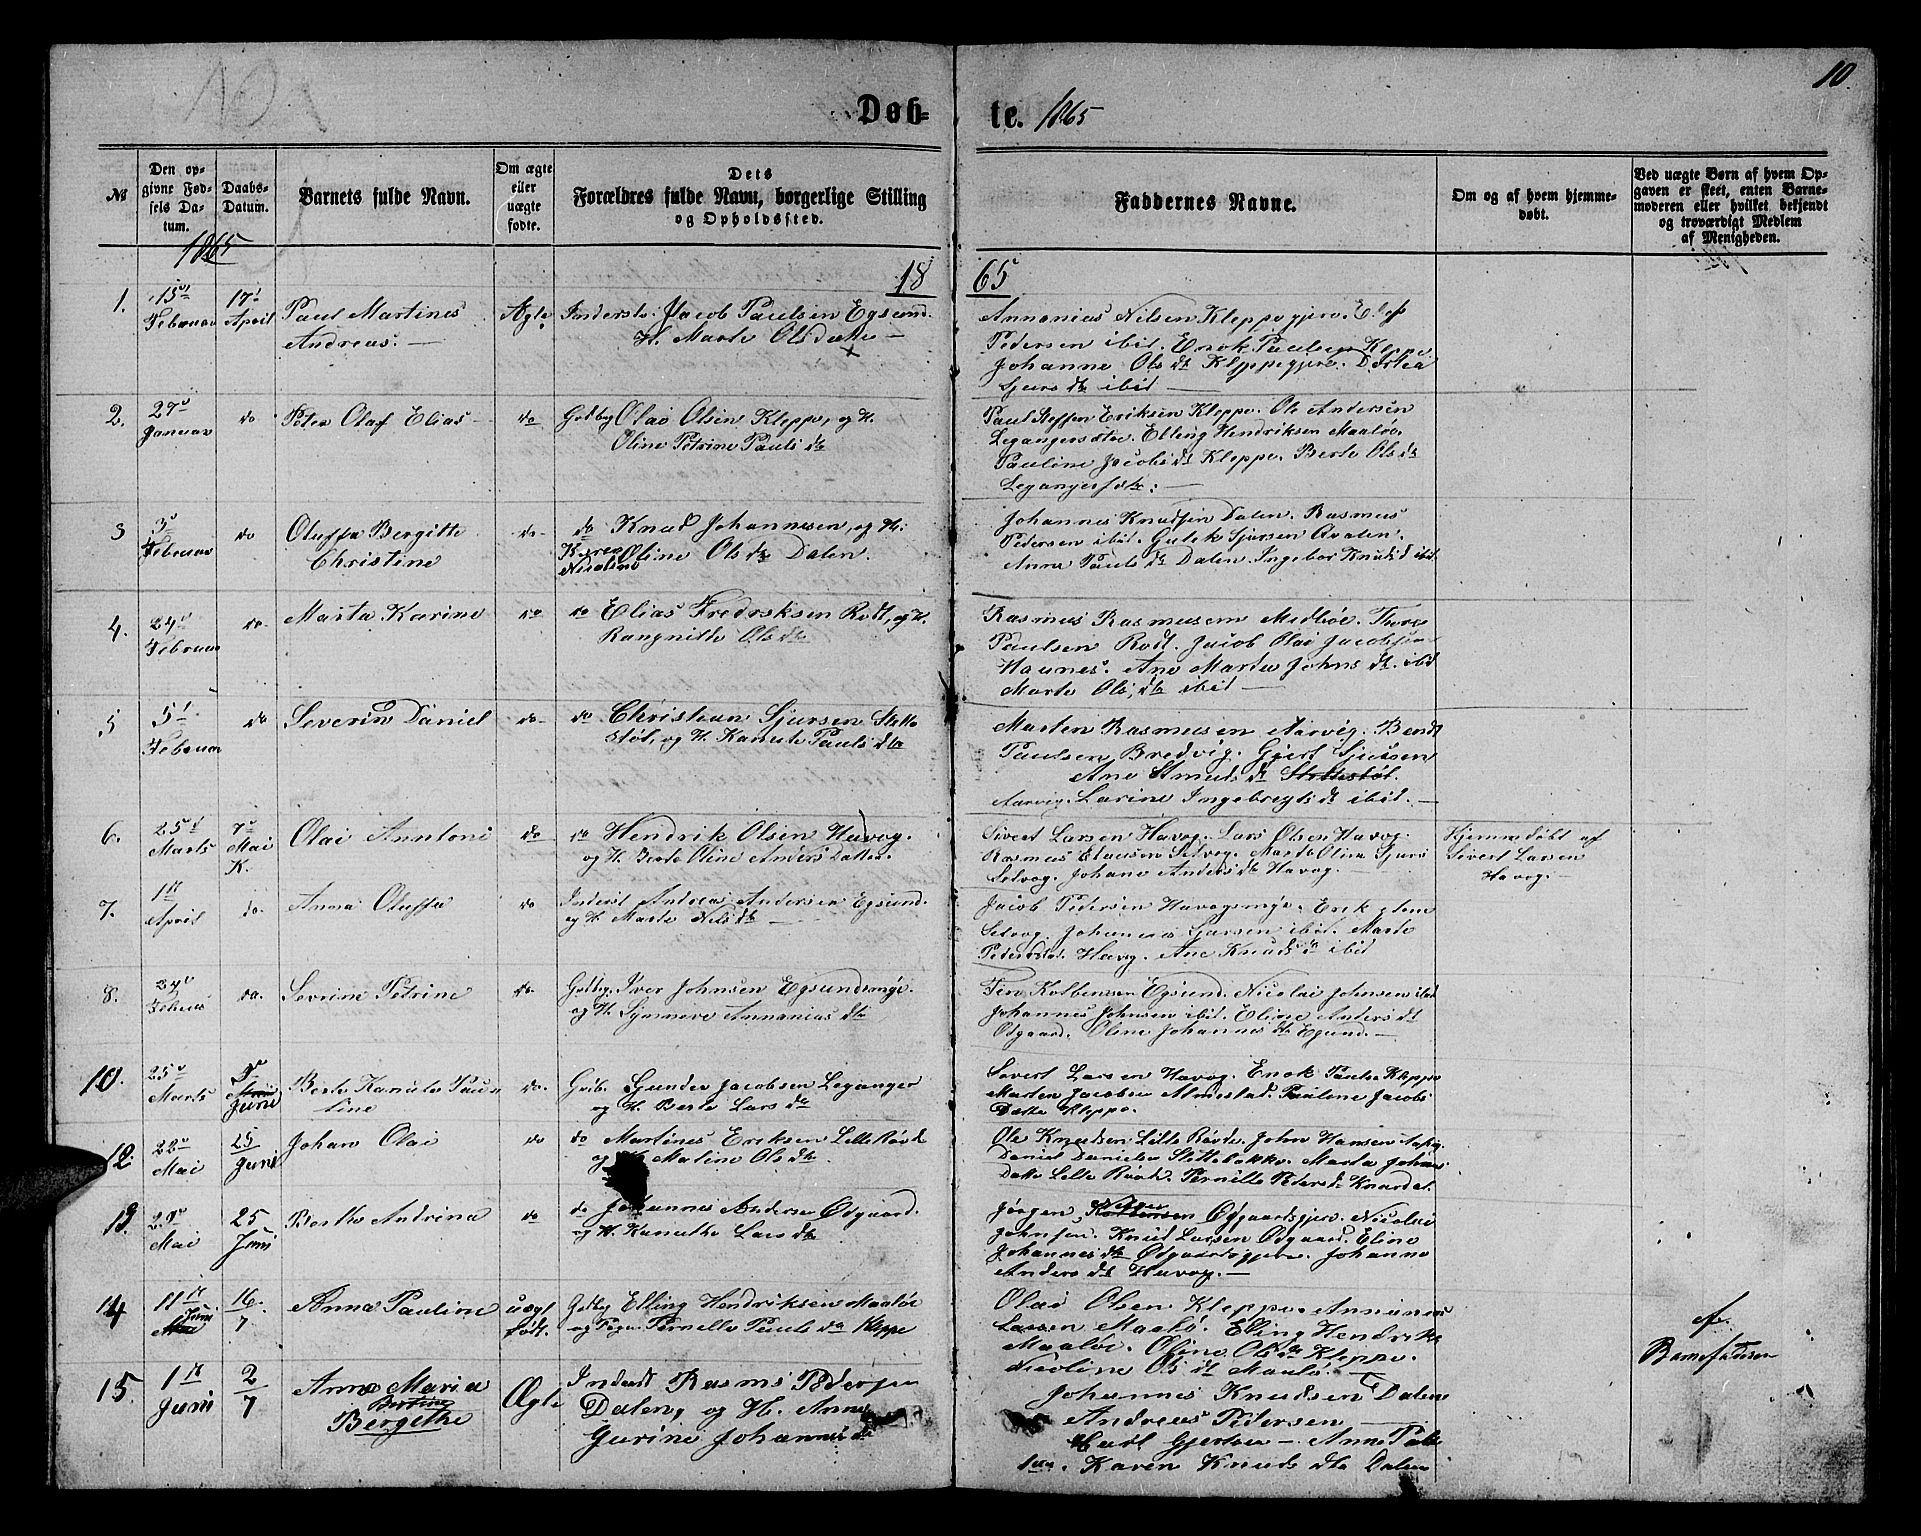 10.
Døb-
te. 1865
No
Den op-
givne Fød-
sels Da-
tum.
Daabs-
Datum.
Barnets fulde Navn.
Om ægte
eller
uægte
fødte.
Dets
Forældres fulde Navn, borgerlige Stilling
og Opholdssted.
Faddernes Navne.
Om og af hvem hjemme-
døbt.
Ved uægte Børn af hvem Op-
gaven er skeet, enten Barne-
moderen eller hvilket bekjendt
og troværdigt Medlem
af Menigheden.
1865
18
65
1.
15de
Februar
17de
April
Paul Martines
Andreas.
Ægte
Inderste. Jacob Paulsen Egsund.
H. Marte Olsdatter
Annanias Nilsen Kleppegjere. Elef
Pedersen ibid. Enok Paulsen Kleppe
Johanne Olsdt Kleppegjere. Dortea
Sjursdtr ibid
2.
27de
Januar
do
Peter Olaf Elias
do
Gbdbg Olai Olsen Kleppe, og H.
Oline Petrine Paulsdtr
Paul Steffen Eriksen Kleppe. Ole Andersen
Legangersætre. Elling Hendriksen Maaløe.
Pauline Jacobsdt Kleppe. Berte Olsdt
3
3de
Februar
do
Oluffa Bergitte
Christine
do
do Knud Johannesen, og H.
Nicoline Oline Olsdtr Dalen.
Johannes Knudsen Dalen. Rasmus
Pedersen ibid. Gulek Sjursen Aralen.
Anna Paulsdtr Dalen. Ingebor Knudsd ibid.
4.
24de
Februar
do
Marta Karine
do
do Elias Fredreksen Rødt, og H.
Rangnilde Olsdtr
Rasmus Rasmusen Medbøe. Thore
Paulsen Rødt. Jacob Olai Jacobsen
Haunes. Ane Marta Johnsdt. ibid
Marte Olsdtr ibid
5
5te
Februar
do
Severin Daniel
do
do Christian Sjursen Stette
støl, og H. Kanute Paulsdtr
Marten Rasmusen Aarvig. Bendt
Paulsen Bredvig. Gjert Sjursen
Ane Amundsdt Stettestøl.
Aarvig. Larine Ingebregtsdt ibid.
6.
25de
Marts
7de
Mai
K.
Olai Anntoni
do
do Hendrik Olsen Havog.
og H. Berte Oline Anders Datter.
Sivert Larsen Havog. Lars Olsen Havog.
Rasmus Clausen Selvog. Marte Oline Sjurs
Selvog. Johane Andersdtr Havog.
Hjemmedøbt af
Sivert Larsen
Havog.
7.
1ste
April
do
Anna Oluffa
do
Inderst Andreas Andersen Egsund.
og H. Marte Nilsdtr
Jacob Pedersen Havogsmyr. Erik
Selvog. Johannes Larsen ibid. Marte
Pedersdat. Havog. Ane Knudsdt ibid
8.
24de
do.
Sevrine Petrine
do.
Gbdbg. Iver Johnsen Egsundsmyr.
og H. Synneve Annaniasdtr
Fin Kolbensen Egsund. Nicolai Johnsen ibid
Johannes Johnsen ibid. Eline Andersdt
Ødgaard. Oline Johannesdtr Egsund.
10.
25de
Marts
Juni
Berte Kanute Pau
line
do.
Gbdb. Gunder Jacobsen Leganger
og H. Berte Larsdtr
Sivert Larsen Havog. Enok Paulse Kleppe
Marten Jacobsen Almestad. Pauline Jacobs
Datter Kleppe.
12.
22de
Mai
25
Juni
Johan Olai
do
do Martines Eriksen Lille Røvde
og H. Maline Olsdtr.
Ole Knudsen Lille Røvde. John Hansen
Daniel Danielsen Slettebakke. Marta Johans
Datte Lille Røvde. Pernille Petersd. Knardal.
13.
Mai
25
Juni
Berthe Andrina
do
do Johannes Andersen Ødgaard.
og H. Kanutte Larsdtr
Jørgen Nilsen Ødgaardsgjere. Nicolai
Johnsen. Knud Larsen Ødgaard. Eline
Johannesdtr Ødgaardsgjere. Johanne
Andersdt Havog.
14
11te
Juni
16.
7
Anna Pauline
uægt
født.
Gbdbg Elling Hendriksen Maaløe
og Pige Pernelle Paulsdtr Kleppe
Olai Olsen Kleppe. Annanias
Larsen Maalø. Elling Hendrik
Maaløe. Oline Olsdtr Kleppe.
Nicoline Olsdt Maalø.
af
Barnefaderen
15.
1ste
Juni
2
7
Anne Maria
Bertine
Bergithe
Ægte
Inderst Rasmus Pedersen
Dalen, og H. Anne
Gurine Johannesdtr
Johannes Knudsen Dalene
Andreas Pedersen
Carl Gjertsen — Anne Pauls
Karen Knudsdtr Dalen